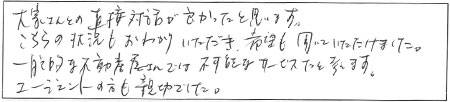 大家さんとの直接対話が良かったと思います。
こちらの状況もおわかりいただき、希望も聞いていただけました。
一般的な不動産屋さんでは不可能なサービスだと思います。
エージェントの方も親切でした。